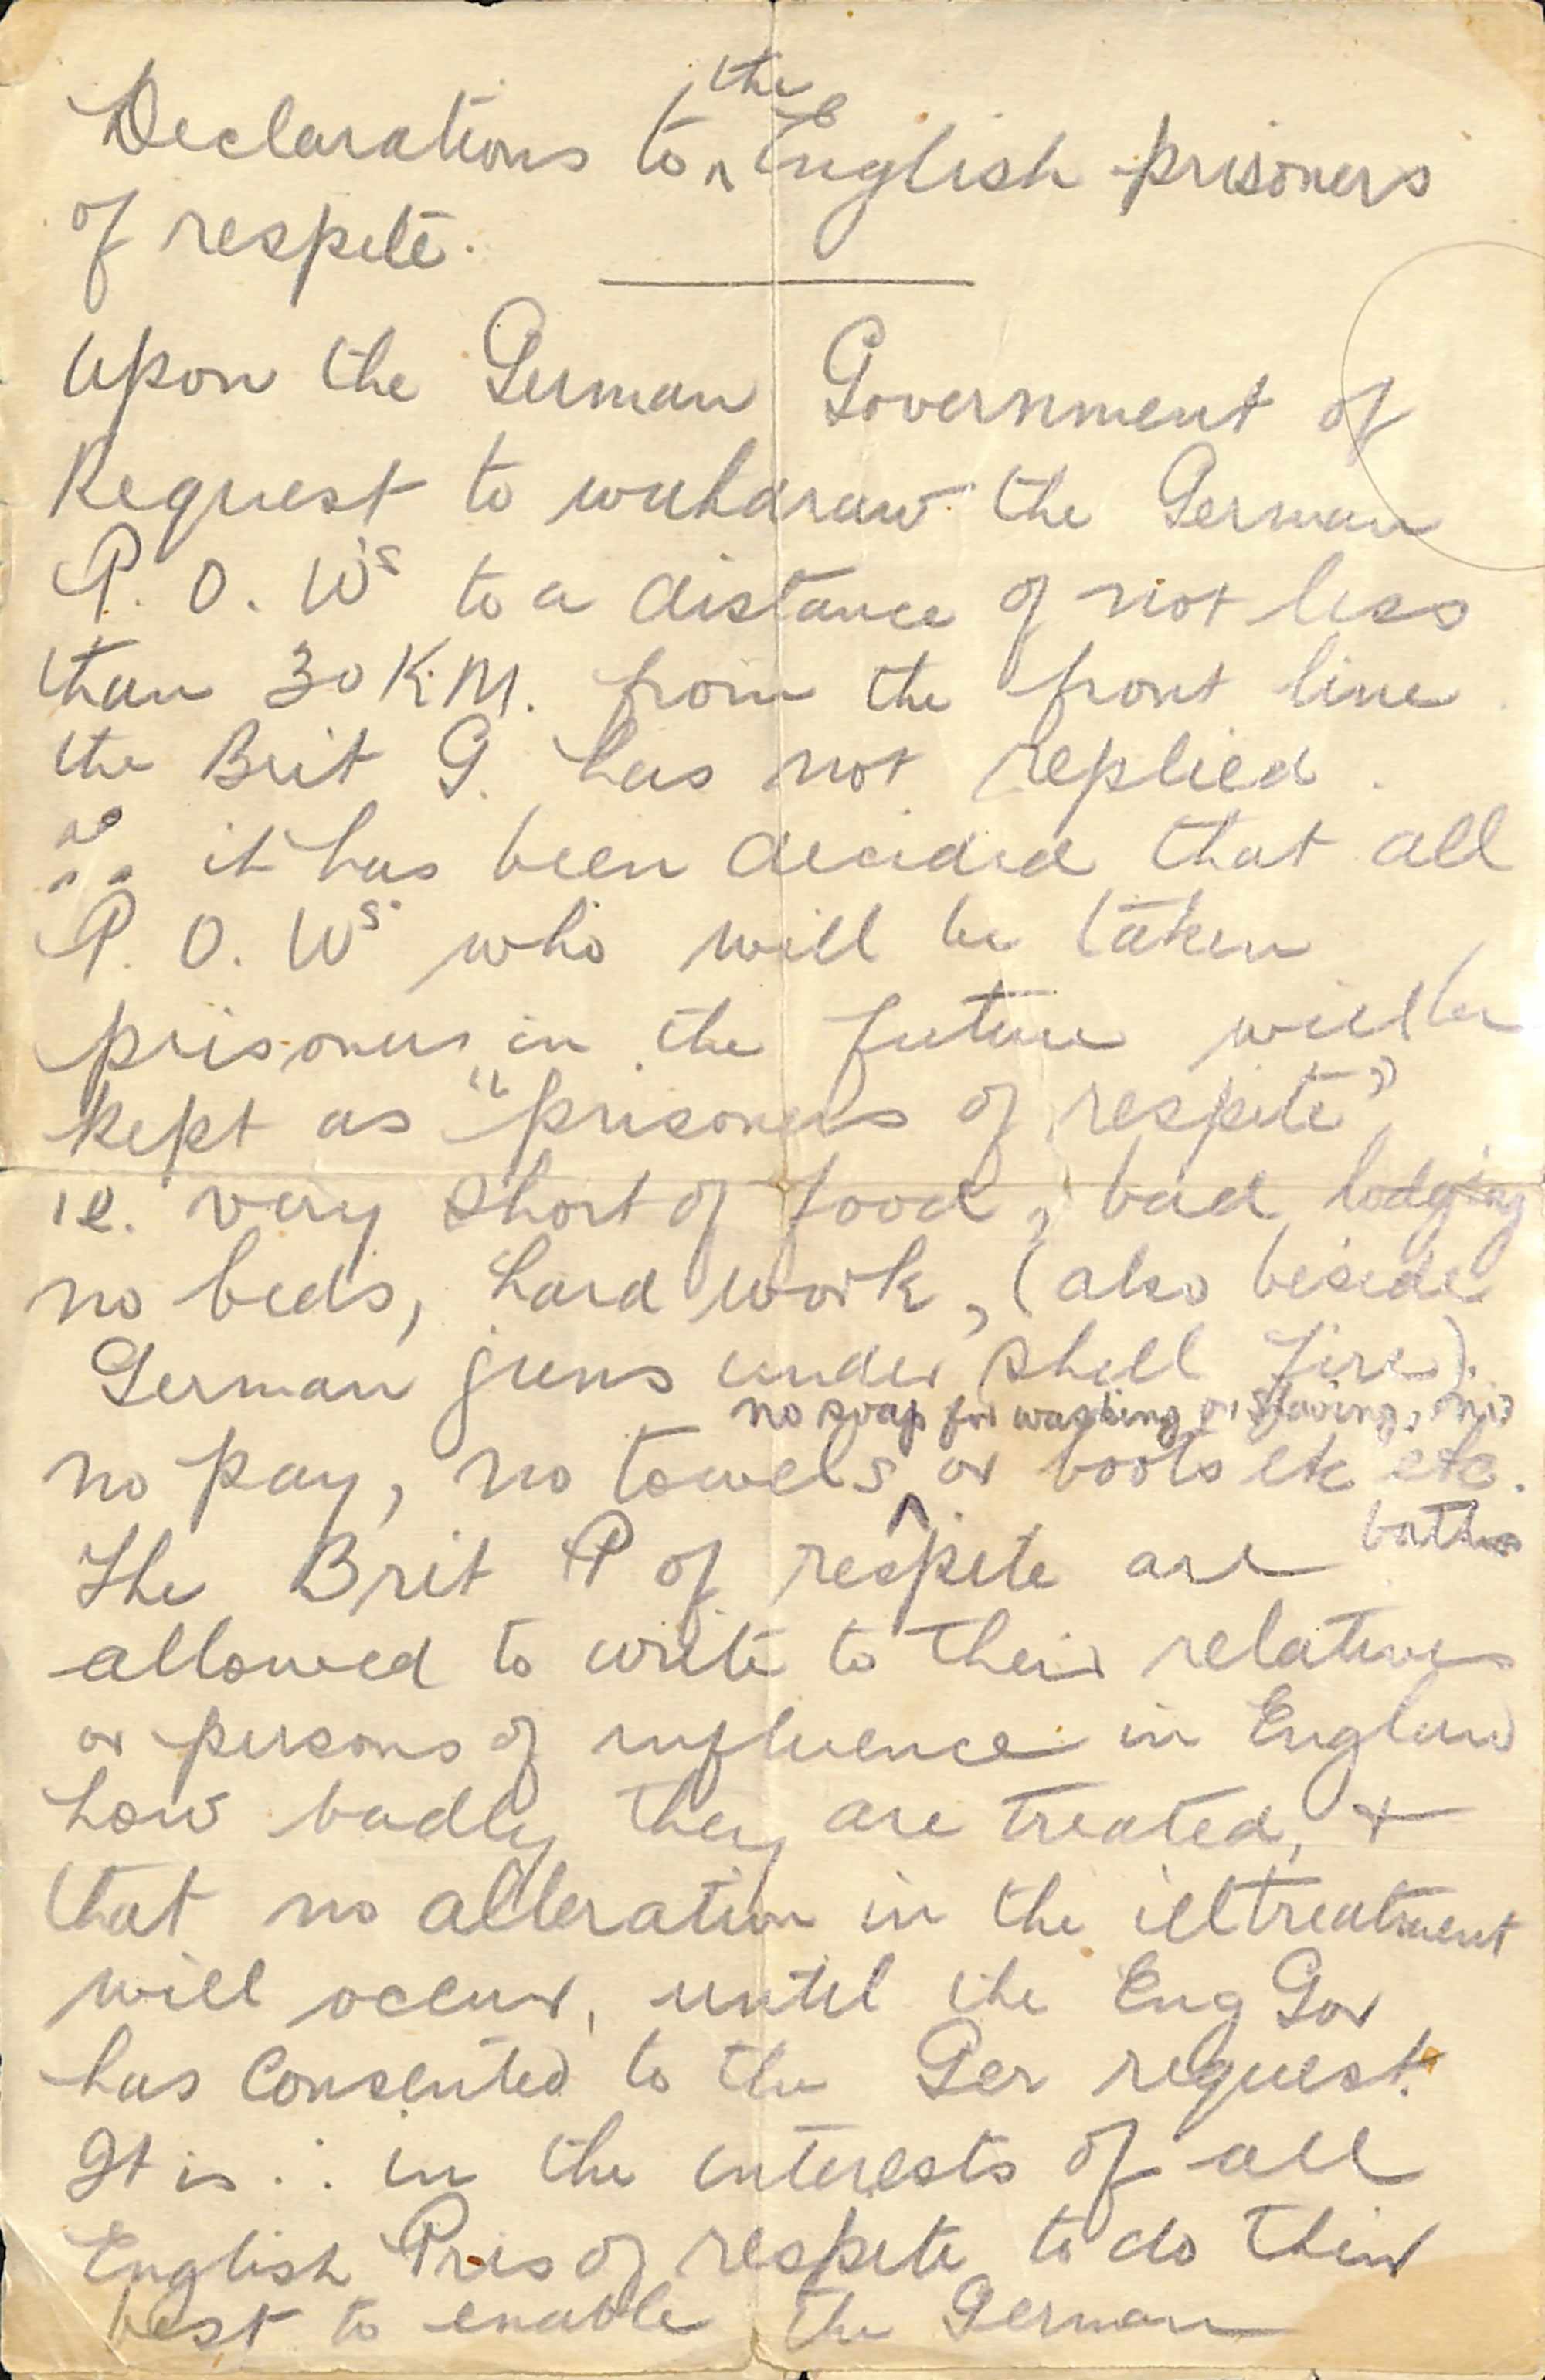 Declarations to the English prisoners
of respite.
Upon the German Government of
Request to withdraw the German
P. O. W's to a distance of not less
than 30 K.M. from the front line
the Brit G. has not replied.
∴ it has been decided that all
P. O. Ws. who will be taken
prisoners in the future will be
kept as "prisoners of respite",
ie. very short of food, bad lodging
no beds, hard work, (also beside
German guns under shell fire).
no soap for washing or shaving, no
no pay, no towels or boots etc etc.
baths
The Brit P of respite are
allowed to write to their relatives
or persons of influence in England
how badly they are treated, +
that no alteration in the illtreatment
will occur, until the Eng Gov
has consented to the Ger request.
It is ∴ in the interests of all
English Pris of respite to do their
best to enable the German